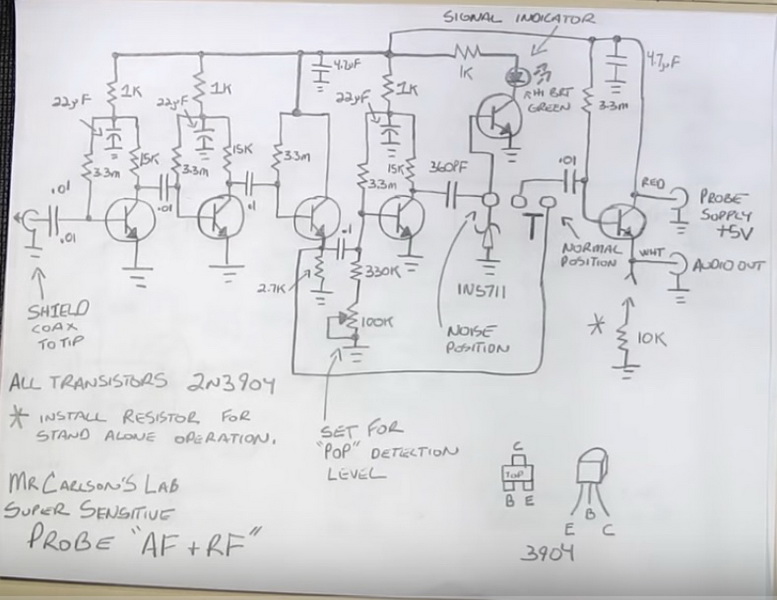 SIGNAL INDICATOR
1K
1K
4.7µF
1K
1K
4.7µF
22µF
22µF
22µF
HI BRT
GREEN
3.3m
15K
15K
3.3m
3.3m
3.3m
15K
3.3m
360PF
.01
.01
.01
.01
.1
.1
RED
PROBE
SUPPLY
+5V
T
NORMAL
POSITION
WHT
AUDIO OUT
2.7K
330K
1N5711
100K
NOISE
POSITION
* 10K
SHIELD
COAX
TO TIP
ALL TRANSISTORS 2N3904
* INSTALL RESISTOR FOR
STAND ALONE OPERATION.
SET FOR
"POP" DETECTION
LEVEL
MR CARLSON'S LAB
SUPER SENSITIVE
PROBE "AF + RF"
C
TOP
B E
E B C
3904